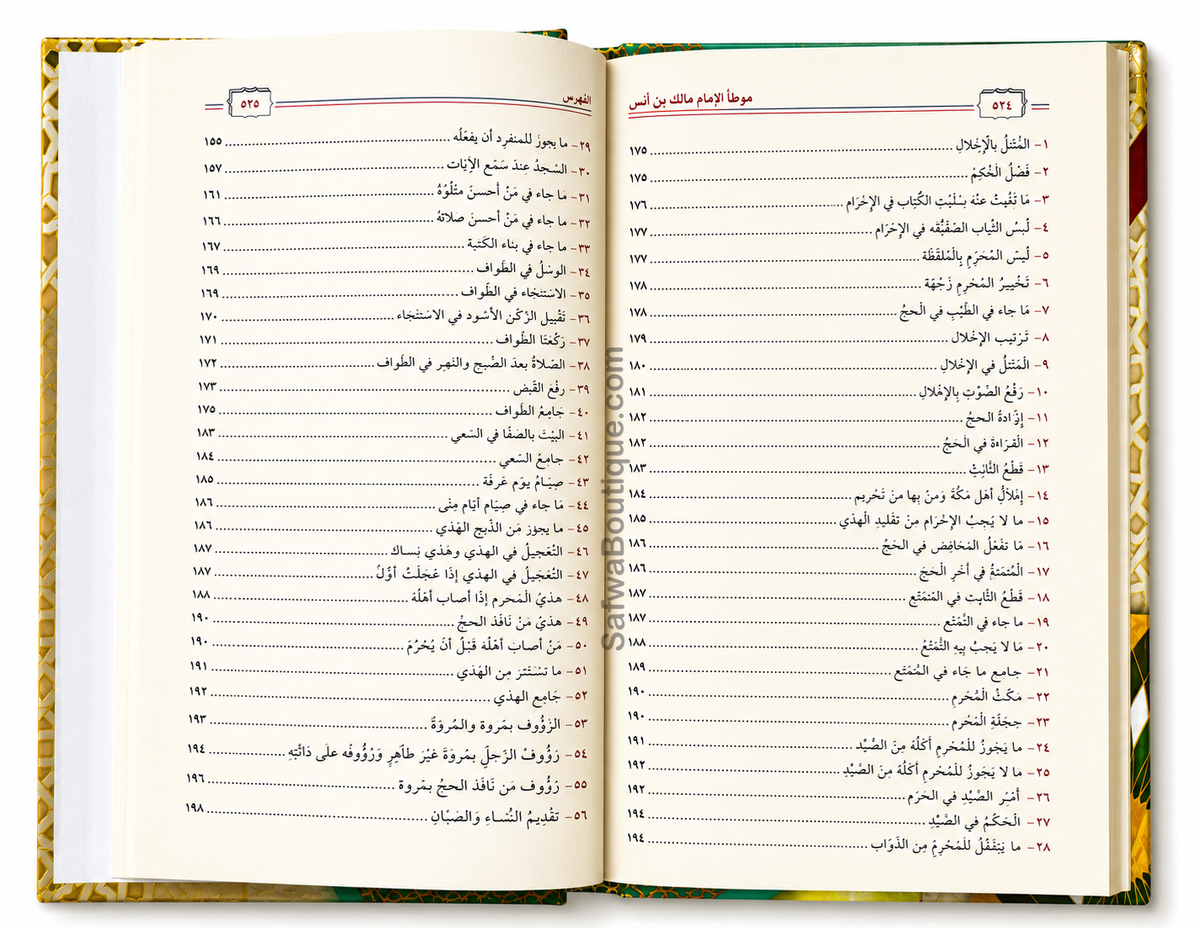 ٥٢٤
موطأ الإمام مالك بن أنس
١- المُتْتلُ بالْإخْلالِ ١٧٥
٢- فَضْلُ الْحُكِمُ ١٧٥
٣- مَا تَقُيتْ عنْهُ بسْلَيْتِ الكُتِاب في الإحْرَام ١٧٦
٤- لُبسُ الثْياب الصَفْيُقَه في الإحْرَام ١٧٧
٥- لُبسَ المُحَرَمِ بِالْمُلقَظَة ١٧٧
٦- تَخْييرُ المُحْرمِ زَجُهْة ١٧٨
٧- مَا جاء في الطْيْبِ في الْحَجُ ١٧٨
٨- تَرْتيب الإخْلال ١٧٩
٩- الْمَتْتلُ في الإخْلالِ ١٨٠
١٠- رَفْعُ الصْوْتِ بِالإخْلالِ ١٨١
١١- إرَادةُ الحجُ ١٨٢
١٢- الْقرَاءةَ في الْحَجُ ١٨٢
١٣- قَطْعُ الثَّائِثْ ١٨٣
١٤- إهْلَالُ أهْل مَكَةَ وَمنْ بِها منَ تَحْريم ١٨٤
١٥- ما لا يَجبُ الإحْرَام مِنَ تقْليدِ الْهذي ١٨٥
١٦- مَا تفْعَلُ المَحَافِض في الحَجُ ١٨٦
١٧- الْمُتمَتةُ في أخَرِ الْحَجَ ١٨٦
١٨- قَطْعُ الثَّابت في المُتمَتَعِ ١٨٧
١٩- ما جاء في التْمَتْعِ ١٨٧
٢٠- مَا لا يَجبُ بِيهِ التَّمَتعُ ١٨٨
٢١- جامِع ما جَاء في المُتمَتَع ١٨٩
٢٢- مَكَثُ الْمُحَرمِ ١٩٠
٢٣- حِجَلَةِ الْمَحْرم ١٩٠
٢٤- ما يَجَوزُ للمُحْرمِ أكَلُهُ مِنَ الصْيْد ١٩١
٢٥- مَا لا يَجَوزُ للْمُحْرِم أكَلُهُ مِنَ الصْيْدِ ١٩٢
٢٦- أمْرُ الصْيْدِ في الحَرَم ١٩٢
٢٧- الْحَكْمُ في الصْيْدِ ١٩٤
٢٨- ما يَتقَفُلُ للْمُحْرِمِ مِن الدَوَاب ١٩٤
الفهرس
٥٢٥
٢٩- ما يجوزُ للمنفرِد أن يفعَلُه ١٥٥
٣٠- السْجدُ عِندَ سَمْع الآيَات ١٥٧
٣١- مَا جاء في مَنْ أحسنَ متْلُوُهُ ١٦١
٣٢- ما جاء في مَنْ أحسنَ صلَاتهُ ١٦٦
٣٣- ما جاء في بناء الكَتبة ١٦٧
٣٤- الوسْلُ في الطَواف ١٦٩
٣٥- الاسْتنجَاء في الطْواف ١٦٩
٣٦- تَقْبيل الرُكْن الأسْود في الاسْتنْجَاء ١٧٠
٣٧- رَكْعَتَا الطْواف ١٧١
٣٨- الصْلاةُ بعدَ الصْبح والنهر في الطَواف ١٧٢
٣٩- رفْعَ القَبض ١٧٣
٤٠- جَامِعُ الطَواف ١٧٥
٤١- البَيْت بالصَفْا في السَعي ١٨٣
٤٢- جامِعُ السَعي ١٨٤
٤٣- صِيَامُ يوَم عَرفَة ١٨٥
٤٤- مَا جاء في صِيَام أيَام مِنْى ١٨٦
٤٥- ما يجوز مَن الذْبح الهَذي ١٨٦
٤٦- التْعْجيلُ في الهذي وهَذي نِساك ١٨٧
٤٧- التْعْجيلُ في الهذي إذَا عَجَلَتْ أوْلُ ١٨٧
٤٨- هذيُ الْمَحرم إذَا أصاب أهْلُهُ ١٨٨
٤٩- هذيُ مَنْ نَافَذ الحجْ ١٩٠
٥٠- مَنْ أصابَ أهْلُهُ قَبْلُ أنَ يُحُرُمَ ١٩٠
٥١- ما تسْتَتر مِن الهَذي ١٩١
٥٢- جَامِع الهذي ١٩٢
٥٣- الرَؤُوف بمَروة والمُروَةُ ١٩٣
٥٤- رَؤُوفْ الرَجلِ بمَروةَ غيْرَ طاَهِرٍ وَرُؤُوفُه علَى دَائَتِهِ ١٩٤
٥٥- رُؤُوف مَن نَافَذ الحجْ بمَروة ١٩٦
٥٦- تقْدِيمُ النْسُاءِ وَالصَبْانِ ١٩٨
SafwaBoutique.com